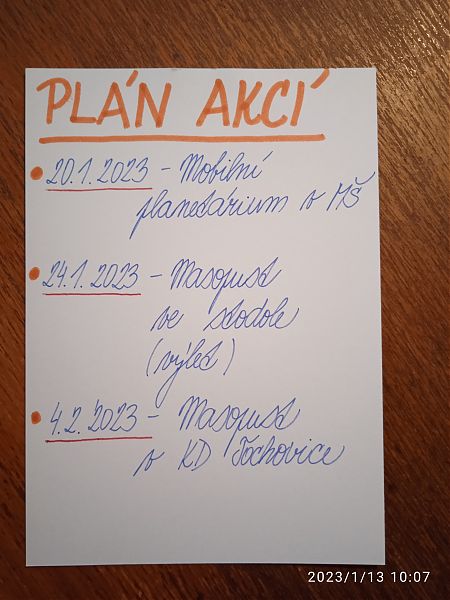 PLÁN AKCÍ
• 20.1.2023 - Mobilní
planetárium v MŠ
• 24.1.2023 - Masopust
ve stodole
(výlet)
• 4.2.2023 - Masopust
v KD Tochovice
2023/1/13 10:07